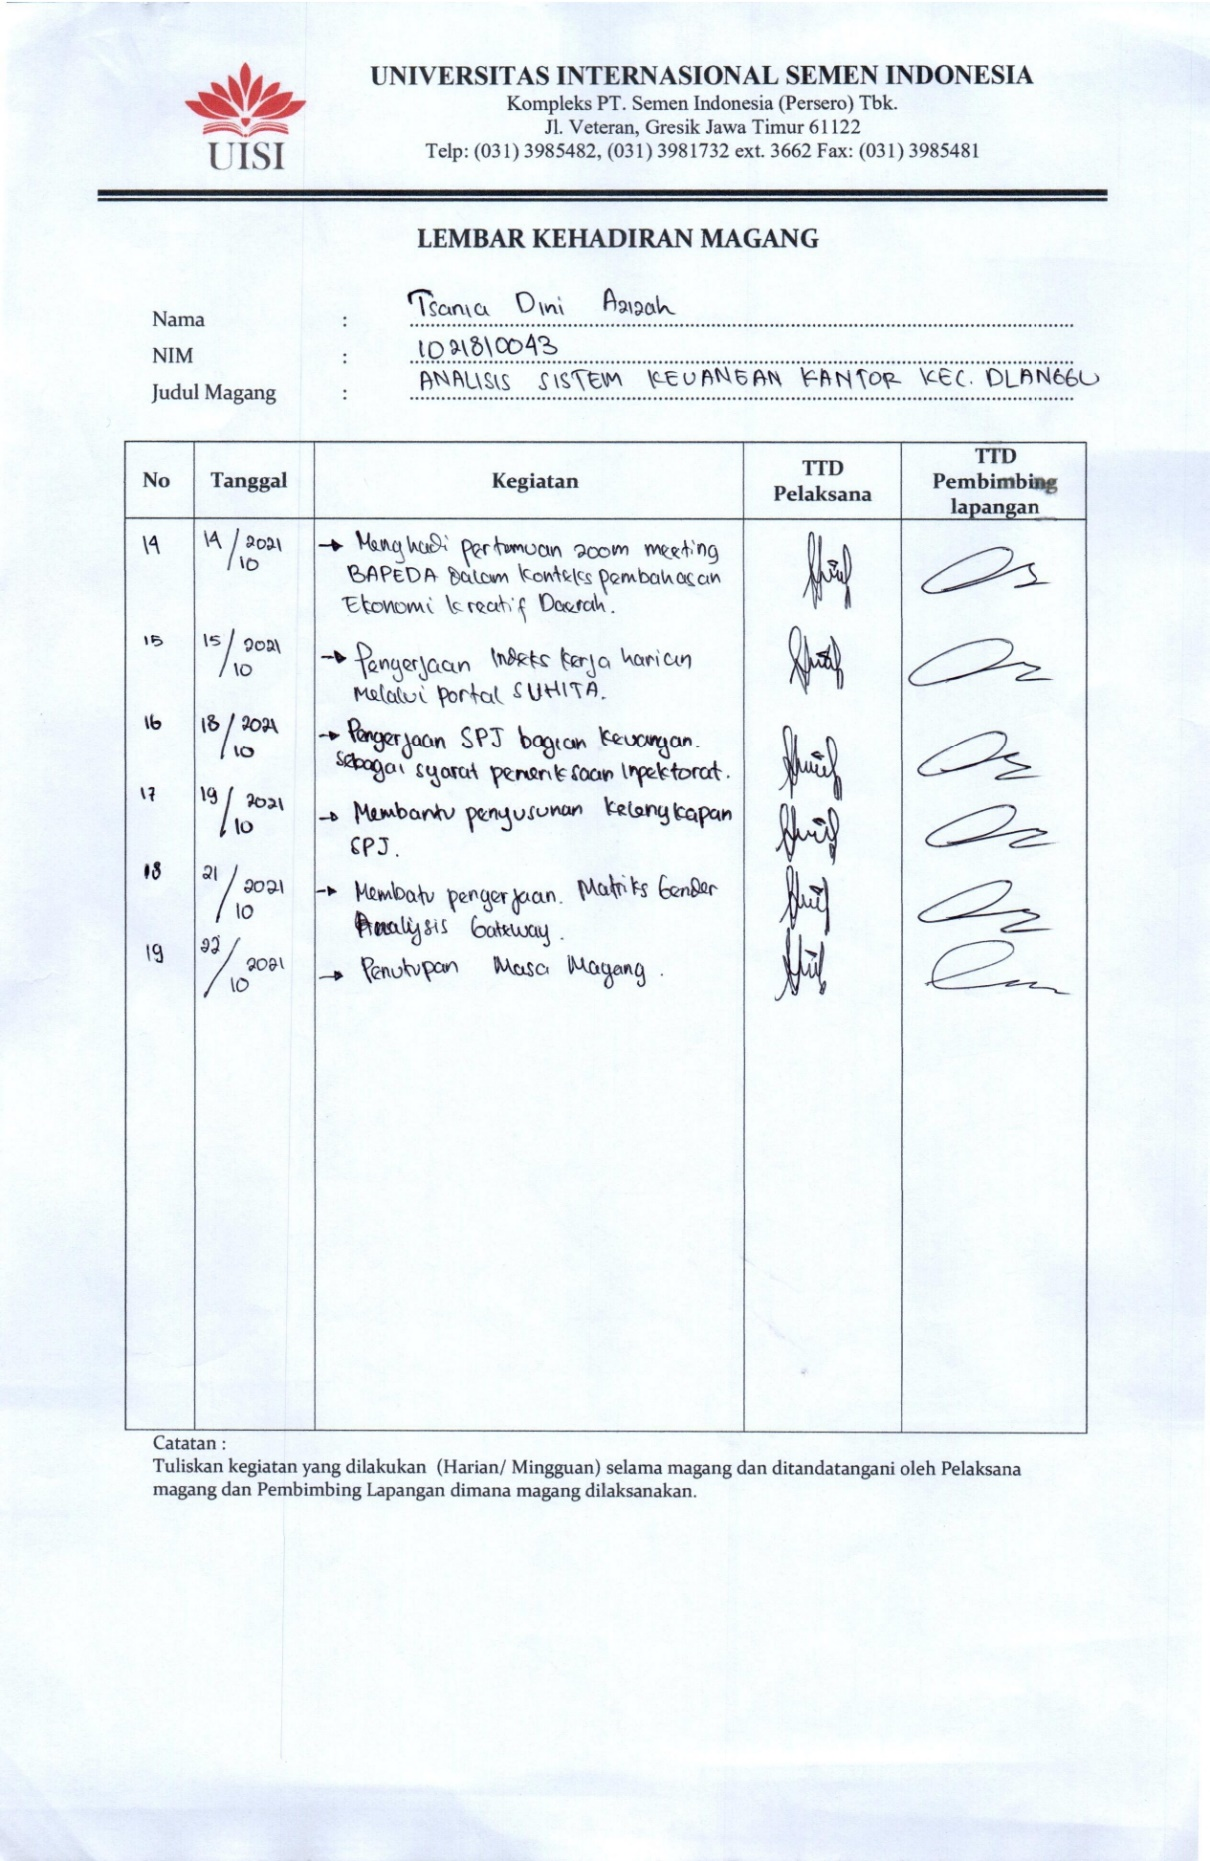 UISI
UNIVERSITAS INTERNASIONAL SEMEN INDONESIA
Kompleks PT. Semen Indonesia (Persero) Tbk.
Jl. Veteran, Gresik Jawa Timur 61122
Telp: (031) 3985482, (031) 3981732 ext. 3662 Fax: (031) 3985481
LEMBAR KEHADIRAN MAGANG
Nama : Tsania Dini Azizah
NIM : 1021810043
Judul Magang : ANALISIS SISTEM KEUANGAN KANTOR KEC. DLANGGU
No Tanggal Kegiatan TTD Pelaksana TTD Pembimbing lapangan
14 14/10 2021 → Menghadi pertemuan zoom meeting
BAPEDA dalam Konteks pembahasan
Ekonomi kreatif Daerah.
15 15/10 2021 → Pengerjaan Indeks kerja harian
Melalui portal SUHITA.
16 18/10 2021 → Pengerjaan SPJ bagian keuangan.
sebagai syarat pemeriksaan Inpektorat.
17 19/10 2021 → Membantu penyusunan kelengkapan
SPJ.
18 21/10 2021 → Membatu pengerjaan. Matriks Gender
Analisis Gateway.
19 22/10 2021 → Penutupan Masa Magang.
Catatan :
Tuliskan kegiatan yang dilakukan (Harian/ Mingguan) selama magang dan ditandatangani oleh Pelaksana
magang dan Pembimbing Lapangan dimana magang dilaksanakan.